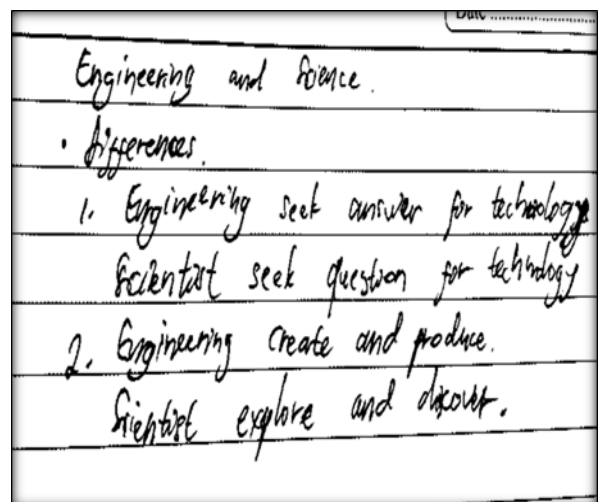 Date
Engineering and Science.
· differences.
1. Engineering seek answer for technology
Scientist seek question for technology
2. Engineering create and produce.
Scientist explore and discover.